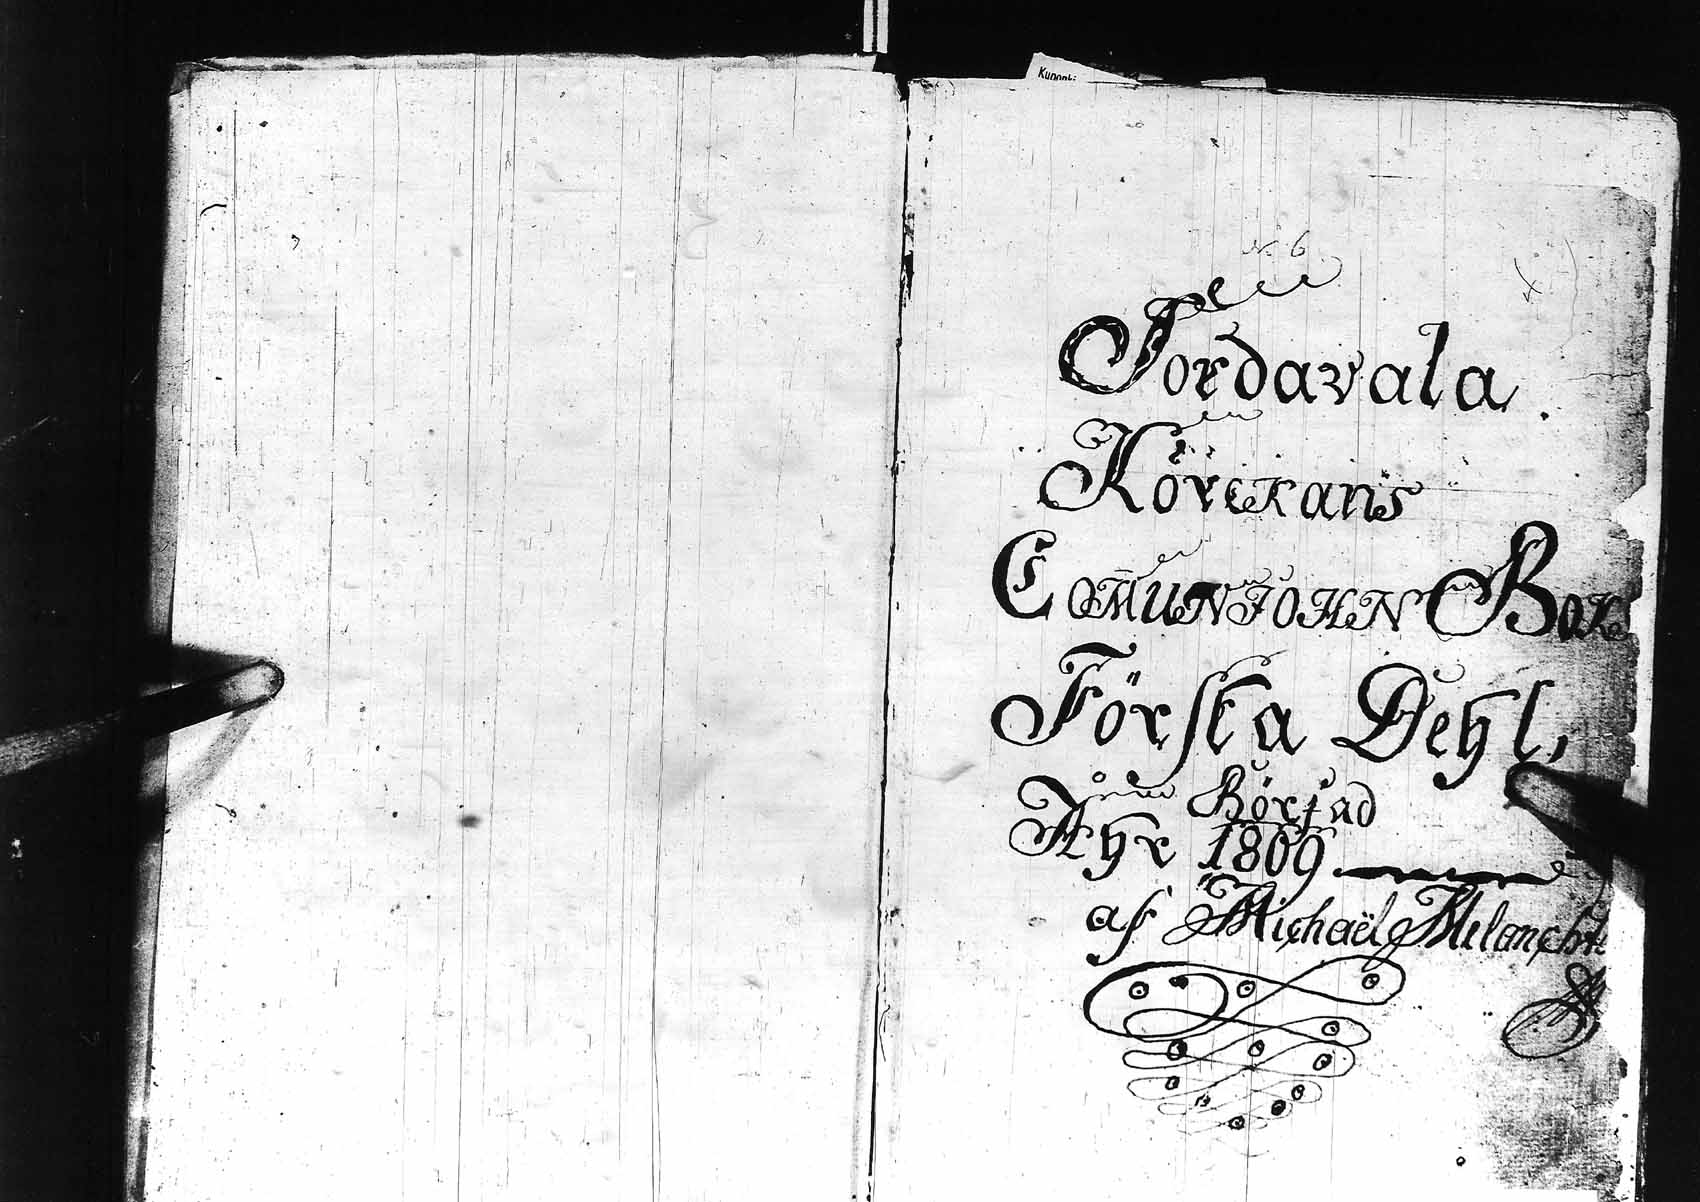 N. 6
Sordavala
Körckans
Comunjohn Bok
Förska Dehl,
Börjad
Åhr 1809
af Michaël Melancht: